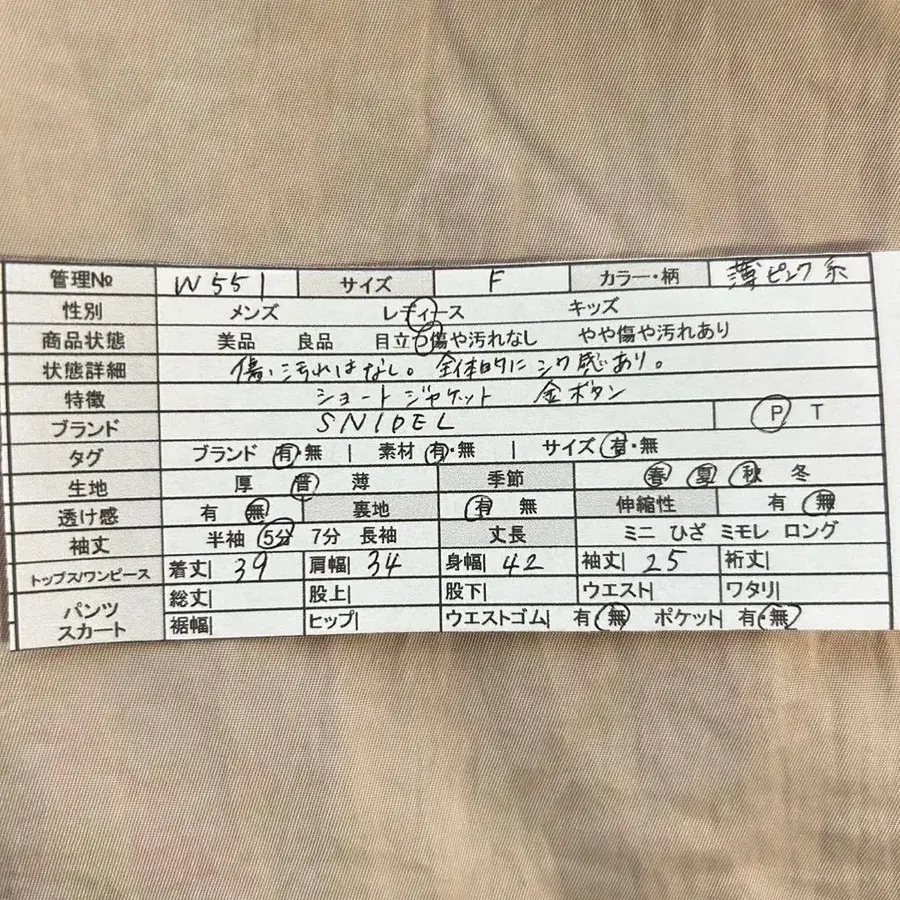 管理No W551 サイズ F カラー・柄 薄ピンク系
性別 メンズ レディース キッズ
商品状態 美品 良品 目立つ傷や汚れなし やや傷や汚れあり
状態詳細 傷、汚れはなし。全体的にシワ感あり。
特徴 ショートジャケット 金ボタン
ブランド SNIDEL P T
タグ ブランド 有・無 | 素材 有・無 | サイズ 有・無
生地 厚 普 薄 季節 春 夏 秋 冬
透け感 有 無 裏地 有 無 伸縮性 有 無
袖丈 半袖 5分 7分 長袖 丈長 ミニ ひざ ミモレ ロング
トップス/ワンピース 着丈| 39 肩幅| 34 身幅| 42 袖丈| 25 裄丈|
パンツ スカート 総丈| 股上| 股下| ウエスト| ワタリ|
裾幅| ヒップ| ウエストゴム| 有・無 ポケット| 有・無